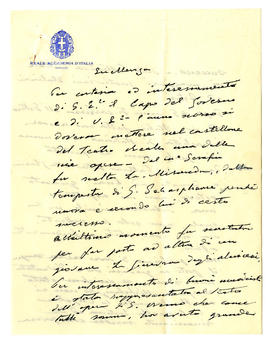 REALE ACCADEMIA D'ITALIA
Eccellenza
Per cortesia ed interessamento
di S. E. il Capo del Governo
e di V. E. l'anno scorso si
doveva mettere nel cartellone
del Teatro Reale una delle
mie opere. Dal Serafin
fu scelta la Miranda, dalla
tempesta di G. Schaspeare perché
nuova e secondo lui di certo
successo.
All'ultimo momento fu
per far posto ad altra di un
giovane. La Ginevra degli Almieri,
Per interessamento di buoni amici
è stata rappresentata al Teatro
dell'opera di S. Remo che come
tutti sanno, ho avuto grande